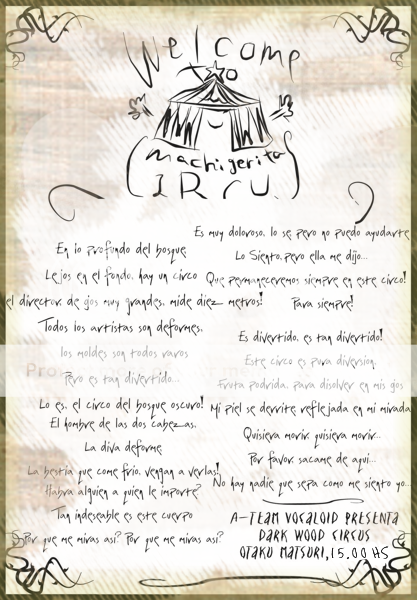 Welcome
to
machigerita
CIRCUS
En lo profundo del bosque
Lejos en el fondo, hay un circo
el director, de gos muy grandes, mide diez metros!
Todos los artistas son deformes,
los moldes son todos raros
Pero es tan divertido...
Lo es, el circo del bosque oscuro!
El hombre de las dos cabezas,
La diva deforme
La bestia que come frio, vengan a verlas!
Habra alguien a quien le importe?
Tan indeseable es este cuerpo
Por que me miras asi? Por que me miras asi?
Es muy doloroso, lo se, pero no puedo ayudarte
Lo Siento, pero ella me dijo...
Que permaneceremos siempre en este circo!
Para siempre!
Es divertido, es tan divertido!
Este circo es pura diversion,
Fruta podrida, para disolver en mis gos
Mi piel se derrite reflejada en mi mirada
Quisiera morir, quisiera morir...
Por favor, sacame de aqui...
No hay nadie que sepa como me siento yo...
A-TEAM VOCALOID PRESENTA
DARK WOOD CIRCUS
OTAKU MATSURI, 15.00 HS